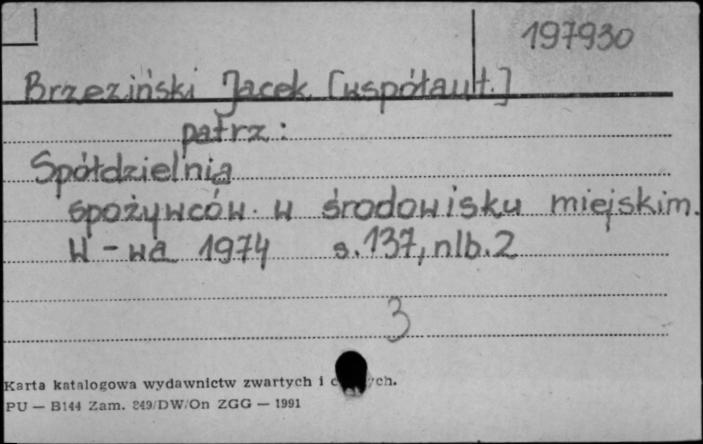 197930
Brzeziński Jacek [współaut.]
patrz:
Spółdzielnia
spożywców w środowisku miejskim.
W-wa 1974 s.137, nlb.2
3
Karta katalogowa wydawnictw zwartych i
PU — B144 Zam. 849/DW/On ZGG — 1991